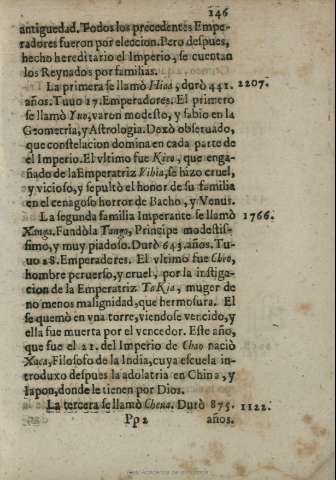 146
antiguedad. Todos los precedentes Empe-
radores fueron por eleccion. Pero despues,
hecho hereditario el Imperio, se cuentan
los Reynados por familias.
La primera se llamò Hiaa, durò 441. 2207.
años. Tuuo 17. Emperadores. El primero
se llamò Yuo, varon modesto, y sabio en la
Geometria, y Astrologia. Dexò obseruado,
que constelacion domina en cada parte de
el Imperio. El vltimo fue Kiro, que enga-
ñado de la Emperatriz Vihia, se hizo cruel,
y vicioso, y sepultò el honor de su familia
en el cenagoso horror de Bacho, y Venus.
La segunda familia Imperante se llamò 1766.
Xanga. Fundòla Tango, Principe modestis-
simo, y muy piadoso. Durò 643. años. Tu-
uo 28. Emperaderes. El vltimo fue Chro,
hombre peruerso, y cruel, por la instiga-
cion de la Emperatriz TaKia, muger de
no menos malignidad, que hermosura. El
se quemò en vna torre, viendose vencido, y
ella fue muerta por el vencedor. Este año,
que fue el 21. del Imperio de Chao naciò
Xaca, Filosofo de la India, cuya escuela in-
troduxo despues la adolatria en China, y
Iapon, donde le tienen por Dios.
La tercera se llamò Cheua. Durò 875. 1122.
Pp2 años.